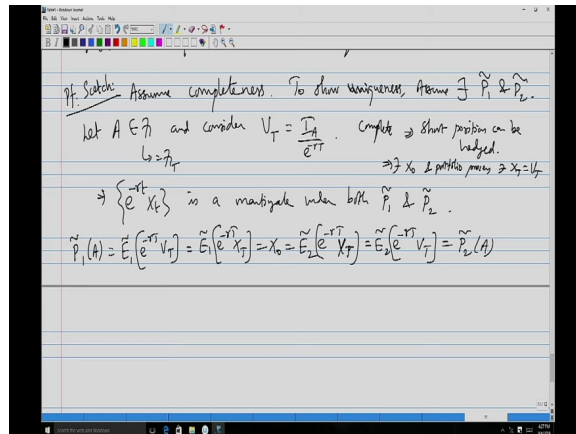 Pf. Scetch: Assume completeness. To show uniqueness, Assume ∃ P̃₁ & P̃₂.
Let A ∈ ℱ and consider V_T = I_A / e^{-rT}. Complete ⇒ Short position can be hedged.
↳ = ℱ_T ⇒ ∃ X₀ & portfolio process ∋ X_T = V_T
⇒ {e^{-rt} X_t} is a martingale under both P̃₁ & P̃₂.
P̃₁(A) = Ẽ₁[e^{-rT} V_T] = Ẽ₁[e^{-rT} X_T] = X₀ = Ẽ₂[e^{-rT} X_T] = Ẽ₂[e^{-rT} V_T] = P̃₂(A)